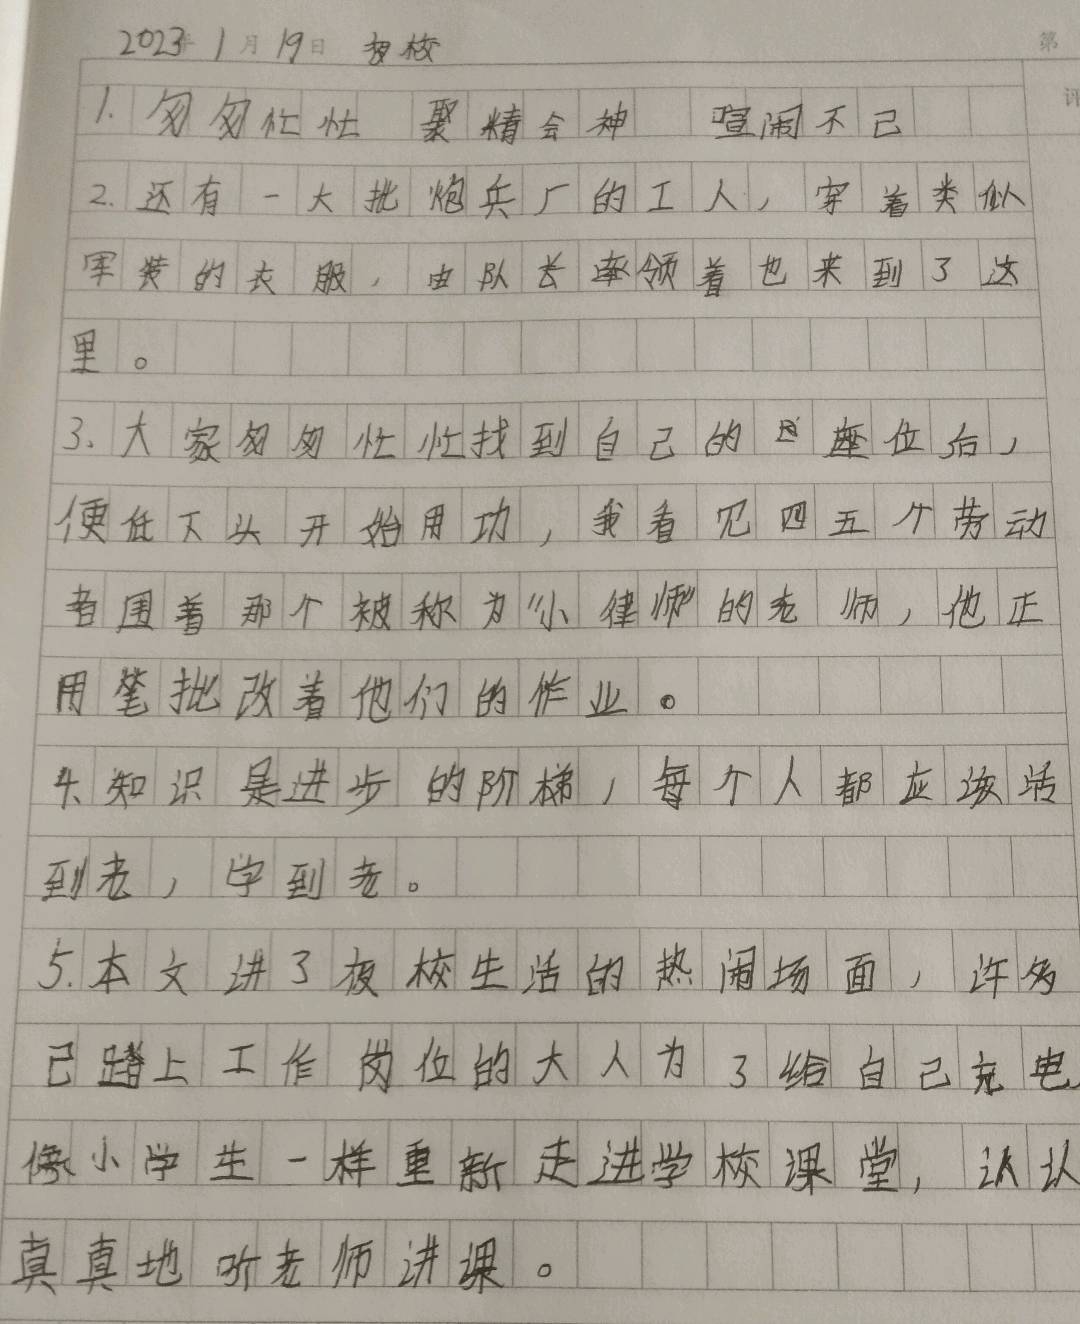 2023年1月19日 夜校
第
评
1. 匆匆忙忙 聚精会神 喧闹不已
2. 还有一大批炮兵厂的工人，穿着类似
军装的衣服，由队长率领着也来到了这
里。
3. 大家匆匆忙忙找到自己的座位后，
便低下头开始用功，我看见四五个劳动
者围着那个被称为“小律师”的老师，他正
用笔批改着他们的作业。
4. 知识是进步的阶梯，每个人都应该活
到老，学到老。
5. 本文讲了夜校生活的热闹场面，许多
已踏上工作岗位的大人为了给自己充电，
像小学生一样重新走进学校课堂，认认
真真地听老师讲课。